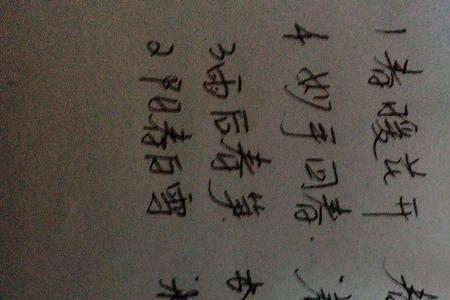 1 春暖花开
4 妙手回春
3 雨后春笋
2 阳春白雪